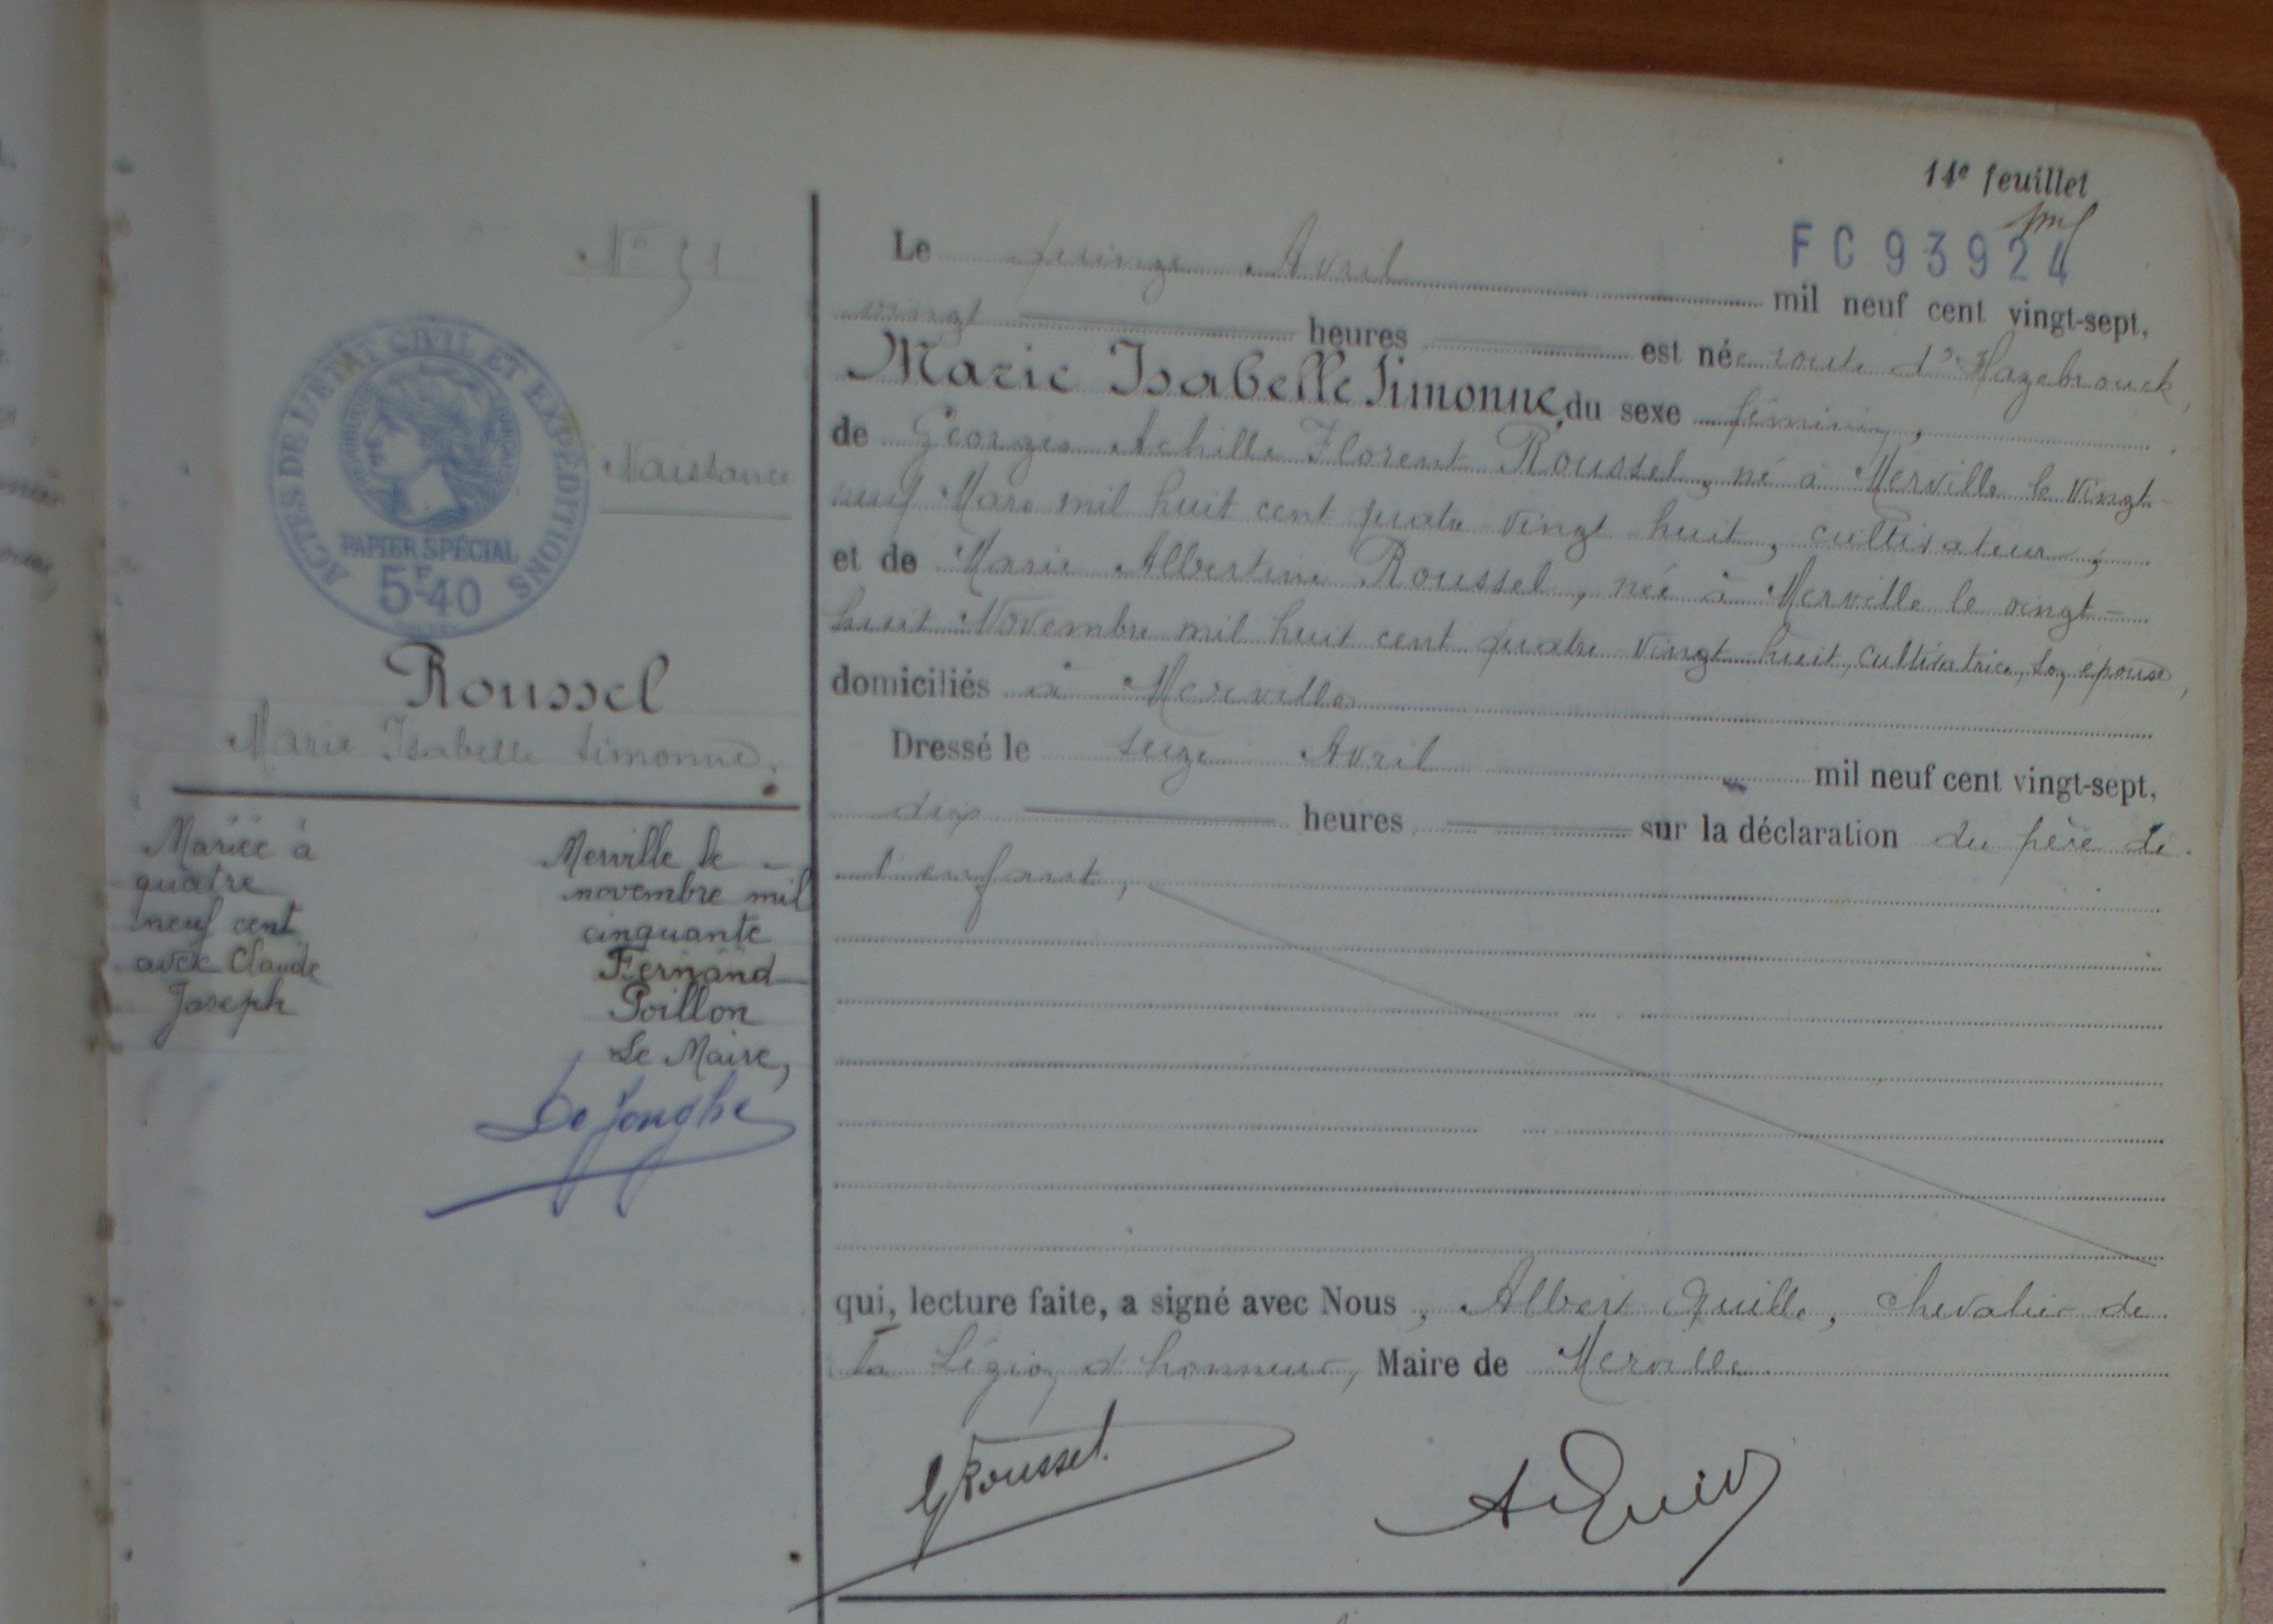 14e feuillet
FC 93924
N° 51
Naissance
ACTES DE L'ETAT CIVIL ET EXPÉDITIONS
PAPIER SPÉCIAL
5F40
Roussel
Marie Isabelle Simonne.
Mariée à Merville le
quatre novembre mil
neuf cent cinquante
avec Claude Fernand
Joseph Poillon
Le Maire,
De Jonghe
Le quinze Avril mil neuf cent vingt-sept,
vingt heures est née route d'Hazebrouck,
Marie Isabelle Simonne, du sexe féminin,
de Georges Achille Florent Roussel, né à Merville le vingt-
neuf Mars mil huit cent quatre vingt huit, cultivateur,
et de Marie Albertine Roussel, née à Merville le vingt-
huit Novembre mil huit cent quatre vingt huit, cultivatrice, son épouse,
domiciliés à Merville
Dressé le seize Avril mil neuf cent vingt-sept,
dix heures sur la déclaration du père de
l'enfant,
qui, lecture faite, a signé avec Nous, Albert Quille, chevalier de
la Légion d'honneur, Maire de Merville
G Roussel.